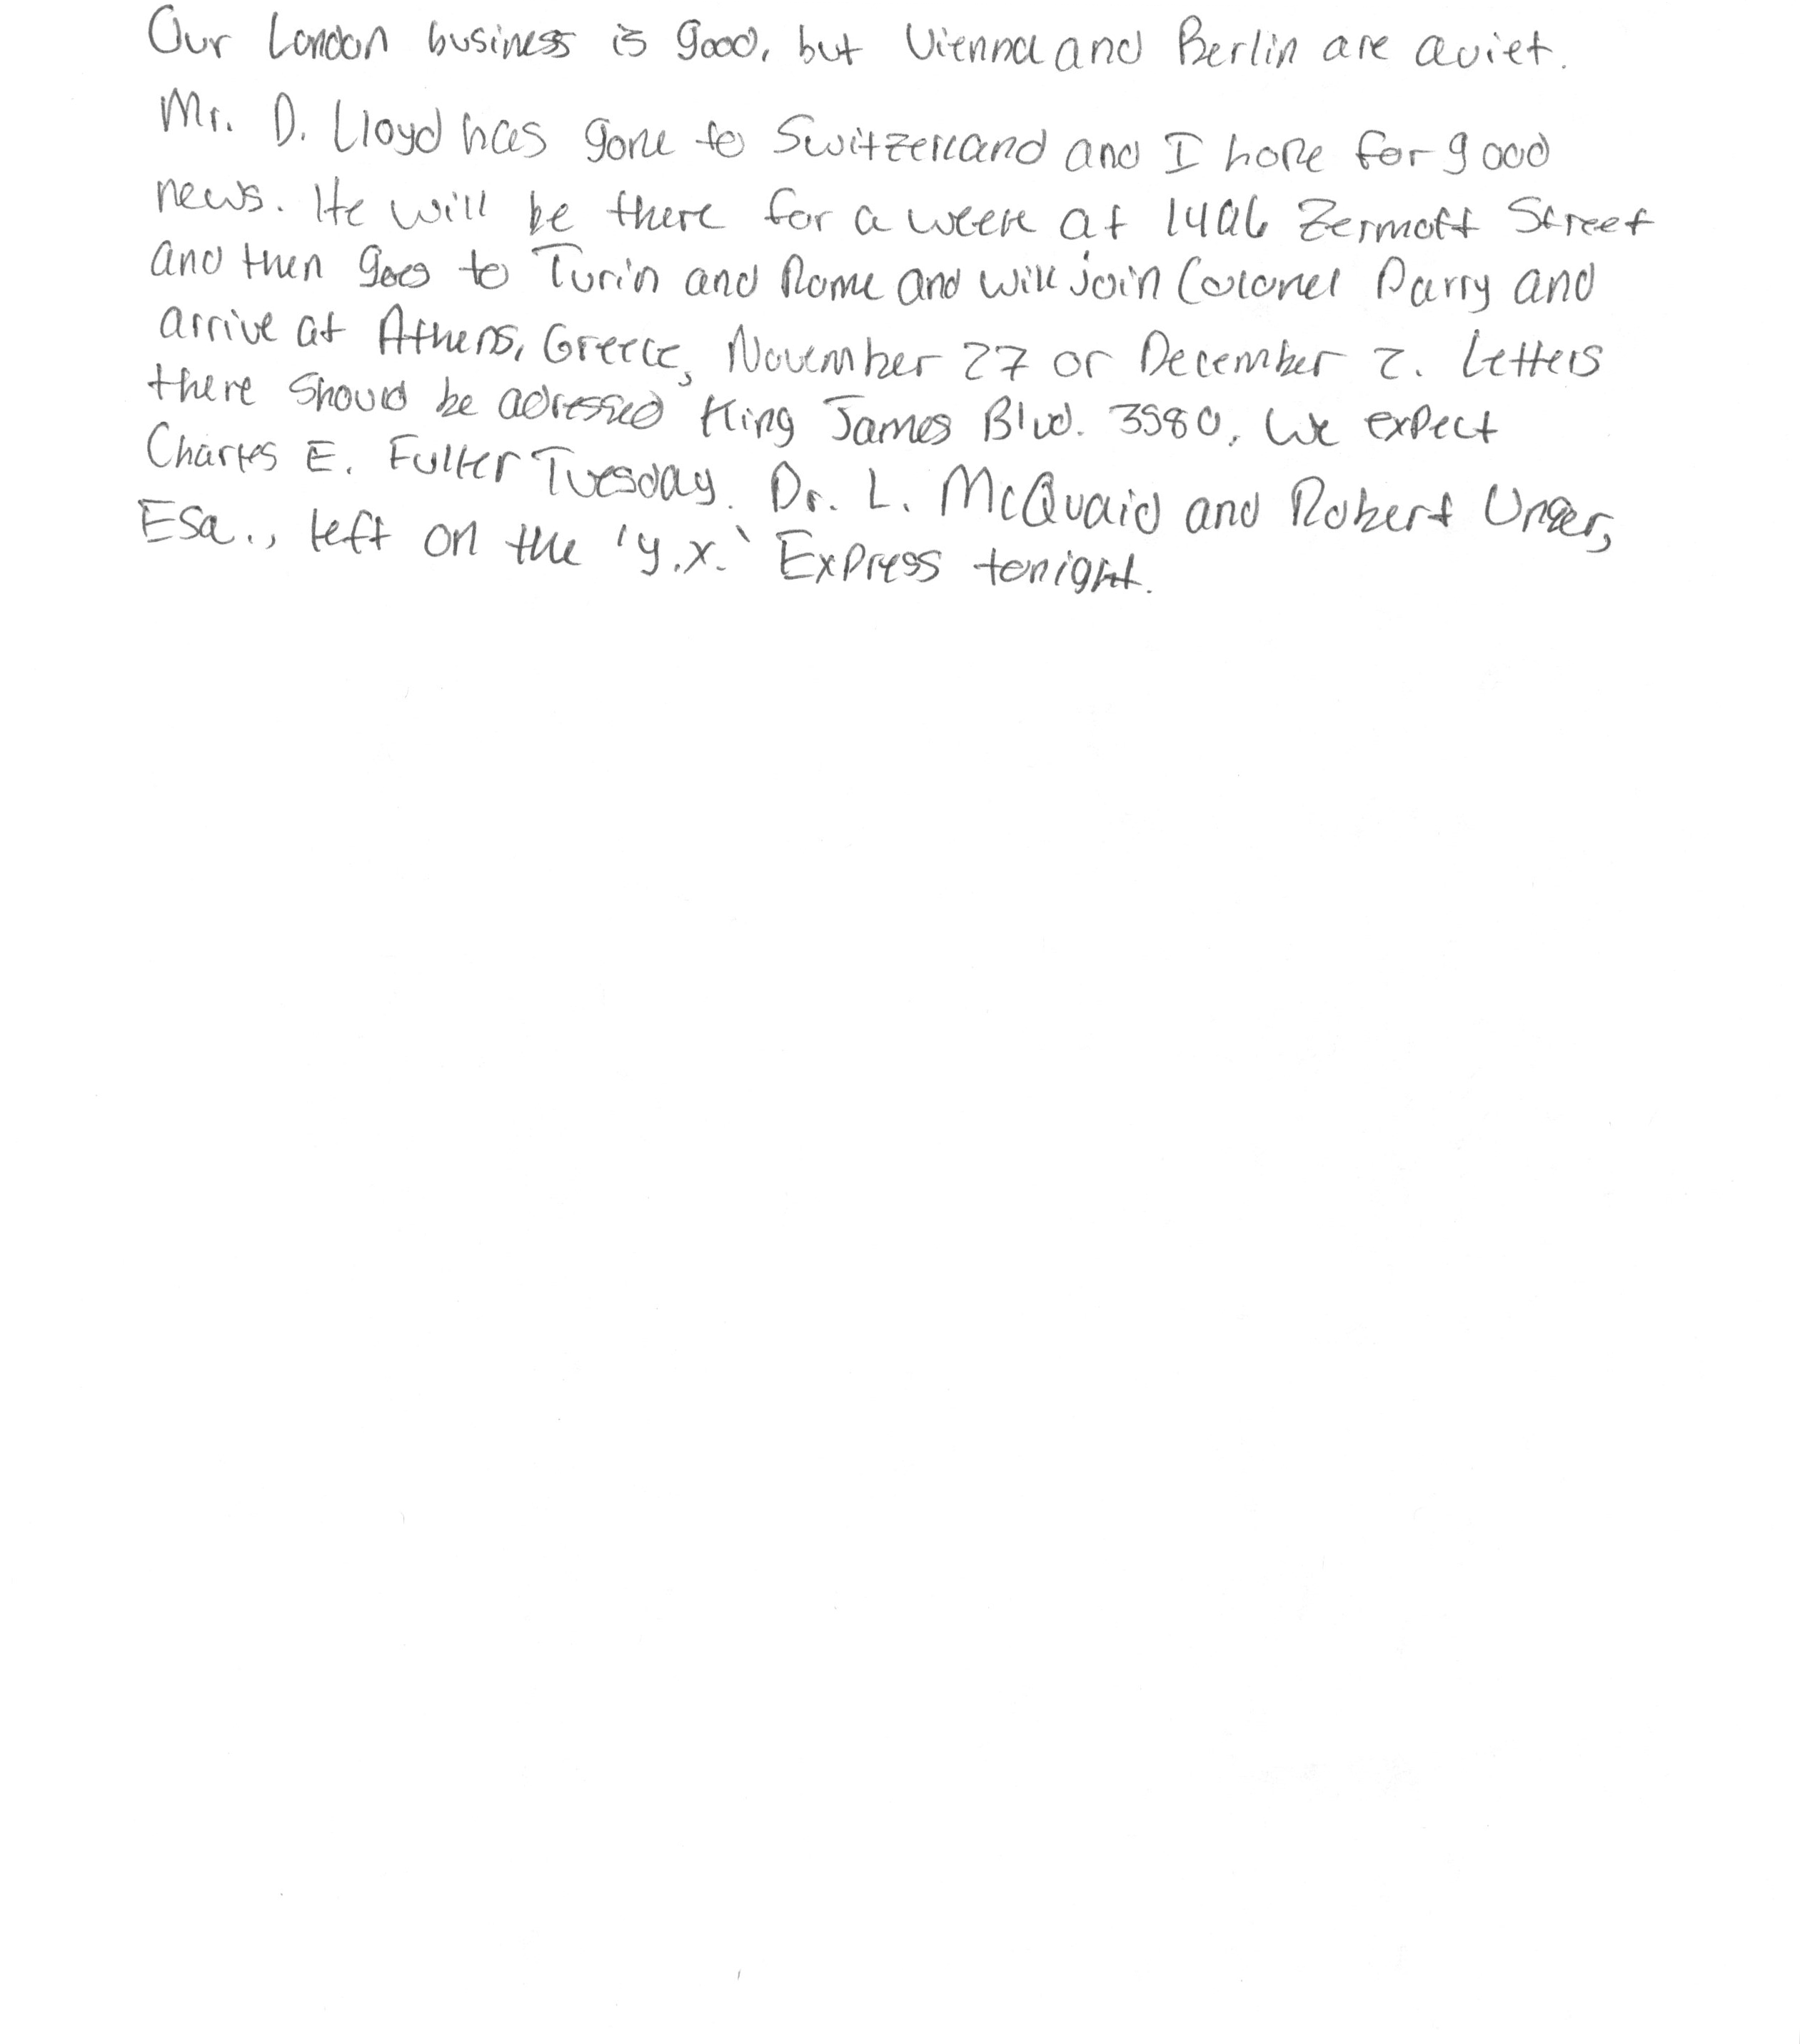 Our London business is good, but Vienna and Berlin are quiet.
Mr. D. Lloyd has gone to Switzerland and I hope for good
news. He will be there for a week at 1496 Zermott Street
and then goes to Turin and Rome and will join Colonel Parry and
arrive at Athens, Greece, November 27 or December 2. Letters
there should be adressed King James Blvd. 3580. We expect
Charles E. Fuller Tuesday. Dr. L. McQuaid and Robert Unger,
Esq., left on the 'y.x.' Express tonight.